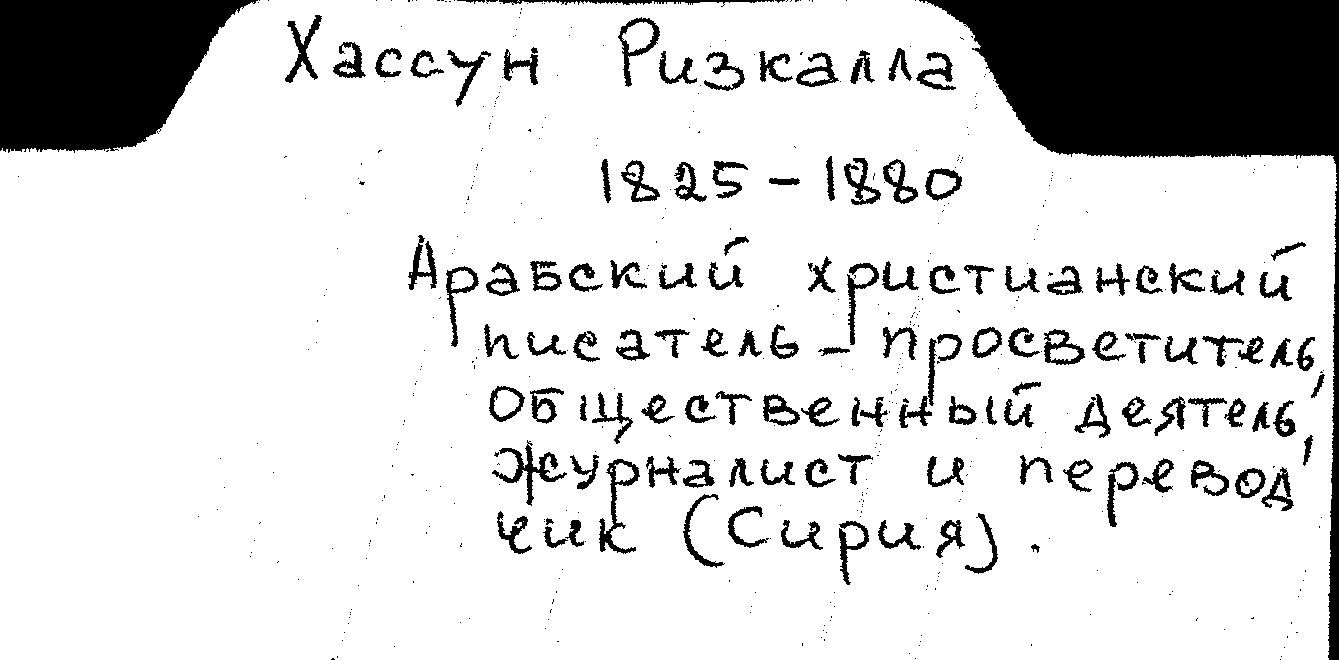 Хассун Ризкалла
1825-1880
Арабский христианский
писатель-просветитель,
общественный деятель,
журналист и перевод
чик (Сирия).